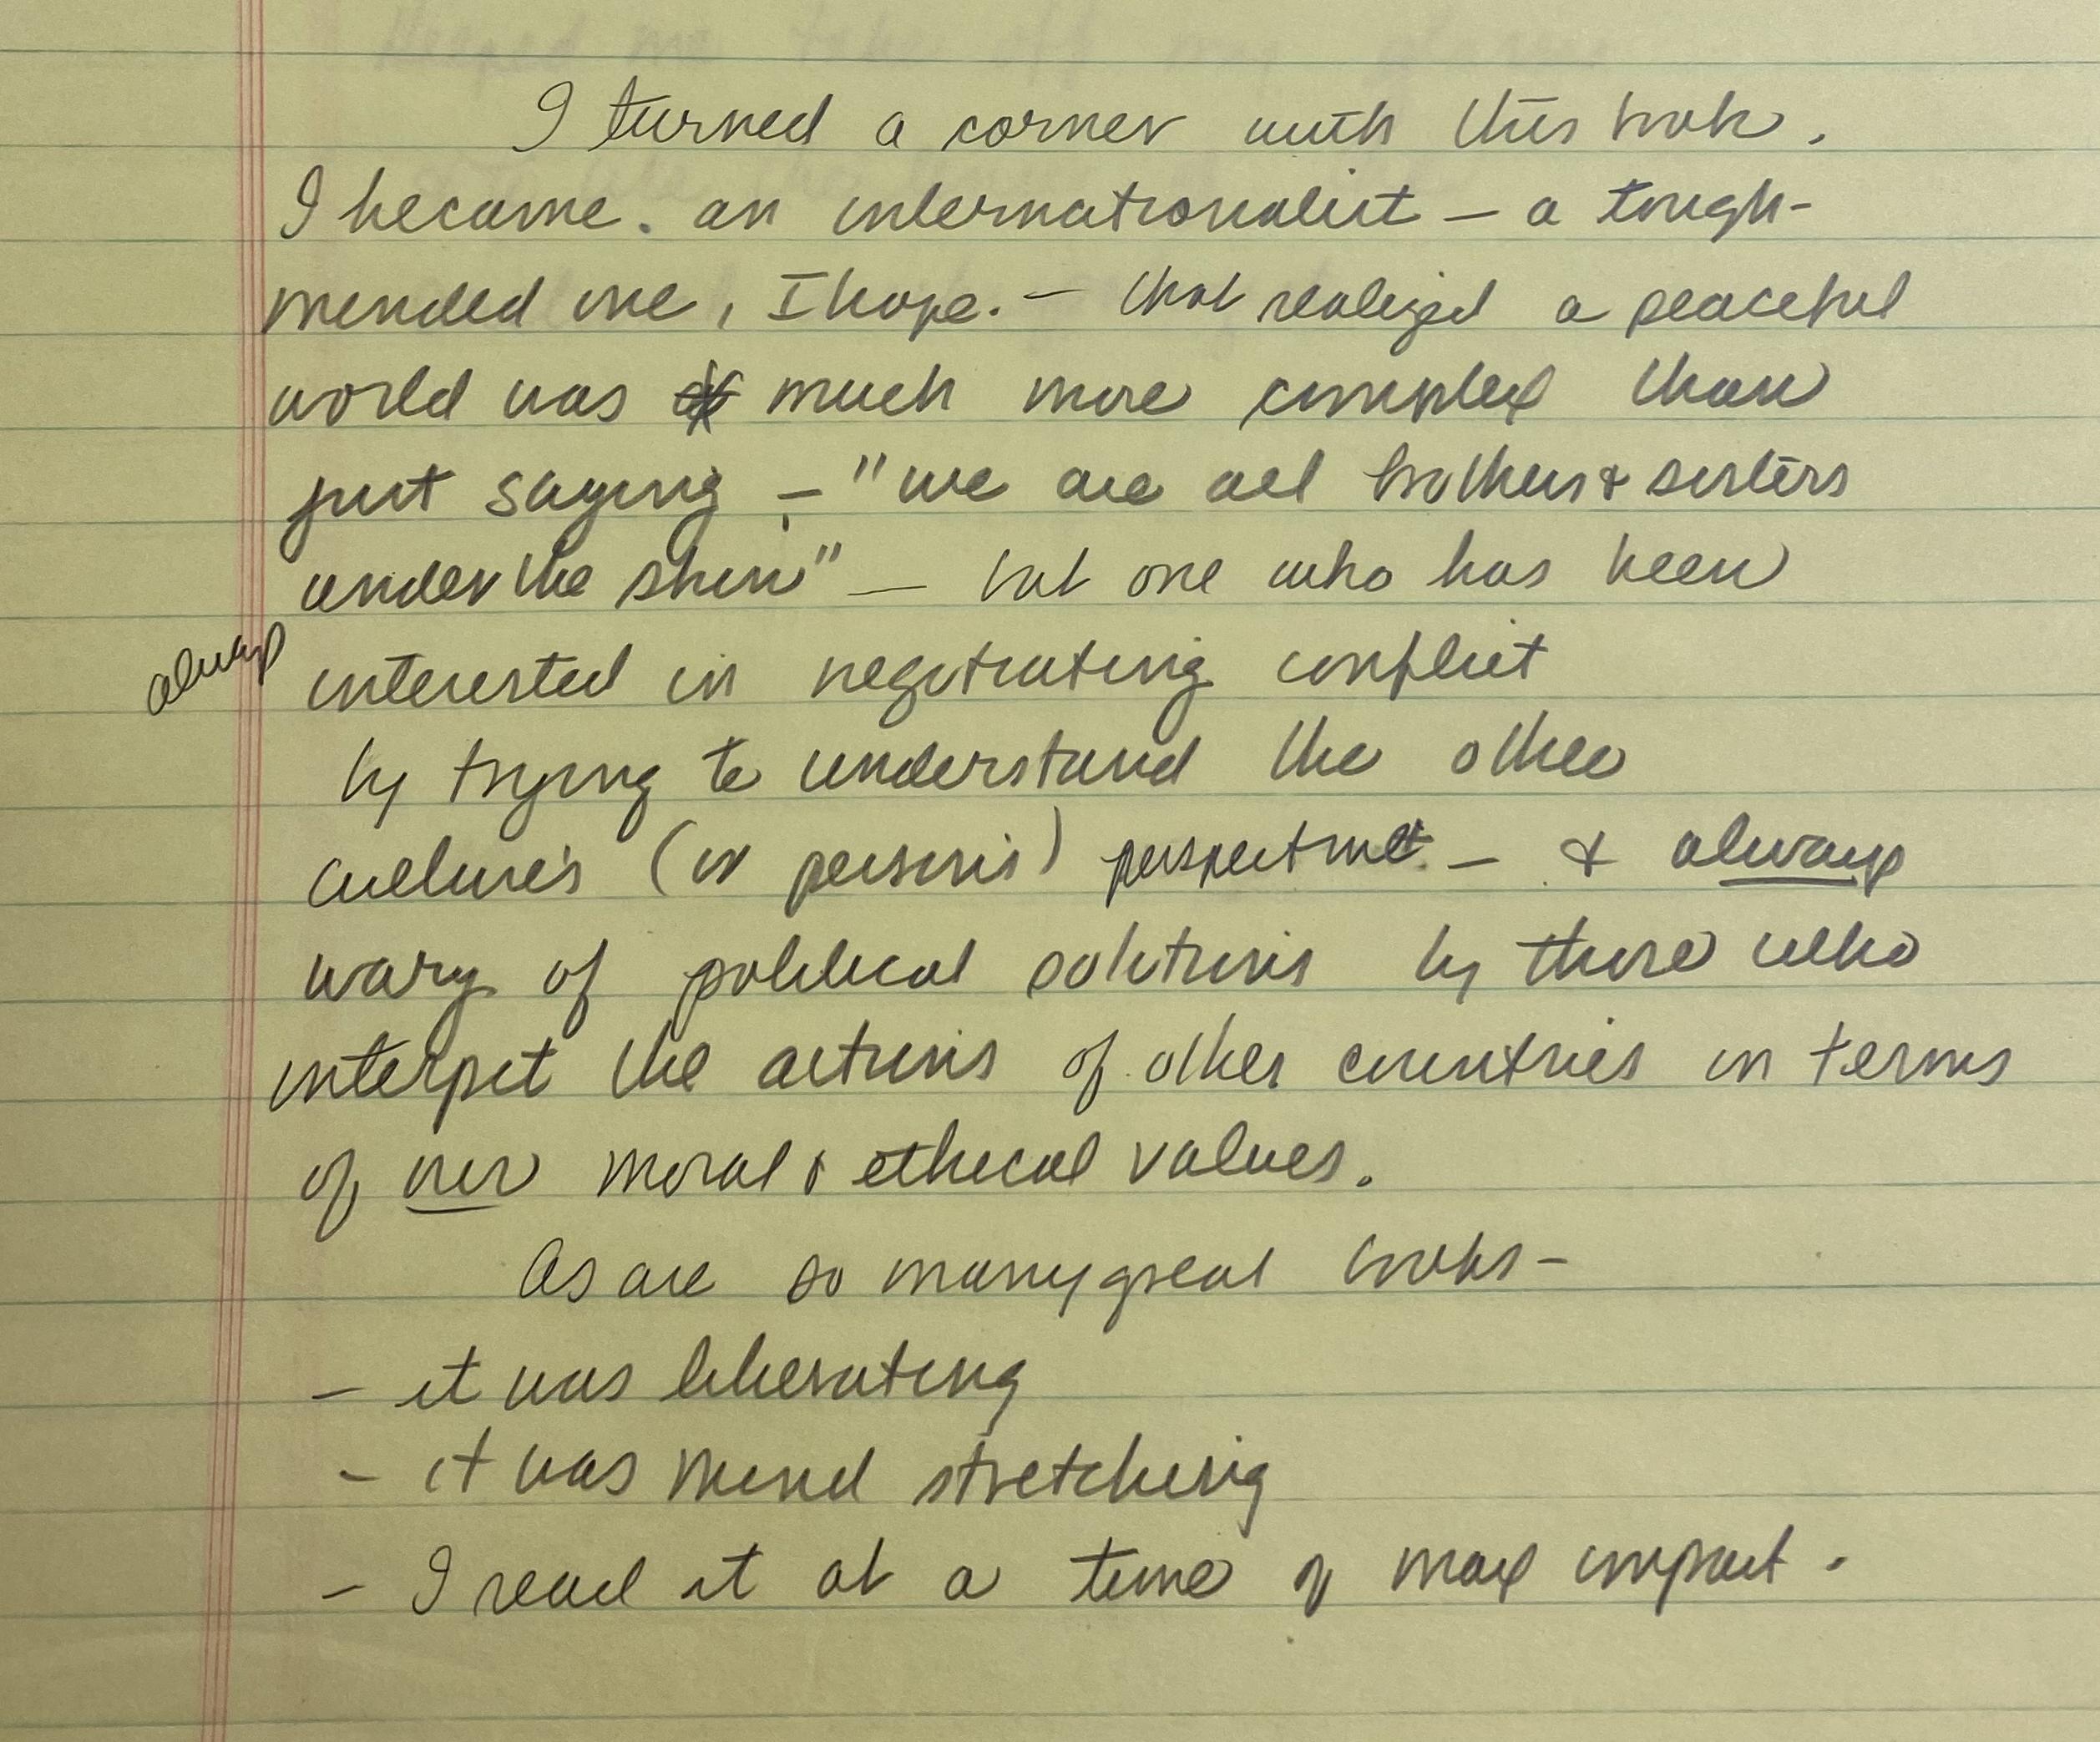 I turned a corner with this book.
I became. an internationalist — a tough-
minded one, I hope. — that realized a peaceful
world was much more complex than
just saying — "we are all brothers & sisters
under the skin" — but one who has been
always interested in negotiating conflict
by trying to understand the other
culture's (or person's) perspective — & always
wary of political solutions by those who
interpret the actions of other countries in terms
of our moral & ethical values.
As are so many great books —
- it was liberating
- it was mind stretching
- I read it at a time of max impact.